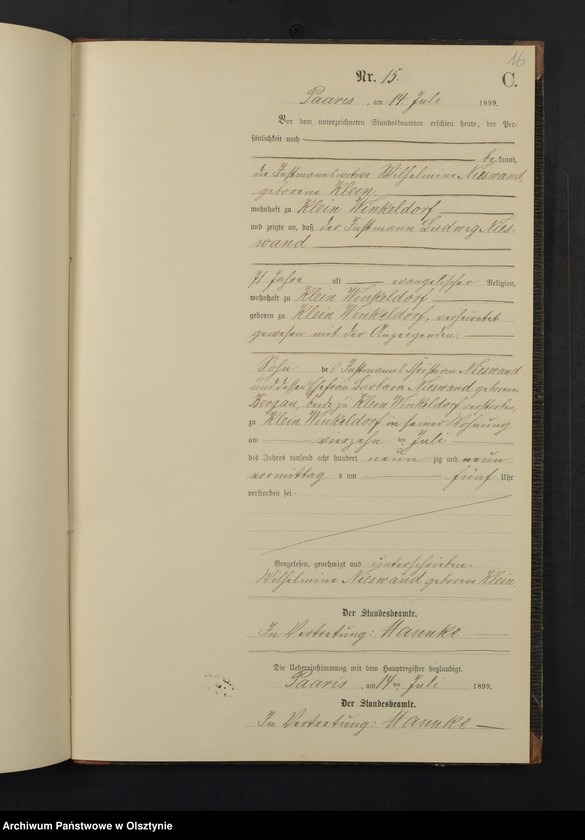 16
Nr. 15.
C.
Paaris, am 14. Juli 1899.
Vor dem unterzeichneten Standesbeamten erschien heute, der Per-
sönlichkeit nach
bekannt,
die Instmannswitwe Wilhelmine Nieswand
geborene Klein.
wohnhaft zu Klein Winkeldorf
und zeigte an, daß der Instmann Ludwig Nies-
wand
71 Jahre alt evangelischer Religion,
wohnhaft zu Klein Winkeldorf
geboren zu Klein Winkeldorf, verheiratet
gewesen mit der Anzeigenden.
Sohn des Instmanns Christian Nieswand
und dessen Ehefrau Barbara Nieswand geborene
Bergau, beide zu Klein Winkeldorf verstorben,
zu Klein Winkeldorf in seiner Wohnung
am vierzehn ten Juli
des Jahres tausend acht hundert neun zig und neun
vormittags um fünf Uhr
verstorben sei.
Vorgelesen, genehmigt und unterschrieben.
Wilhelmine Nieswand geborene Klein.
Der Standesbeamte.
In Vertretung: Mannke.
Die Uebereinstimmung mit dem Hauptregister beglaubigt.
Paaris, am 14 ten Juli 1899.
Der Standesbeamte.
In Vertretung: Mannke.
Archiwum Państwowe w Olsztynie